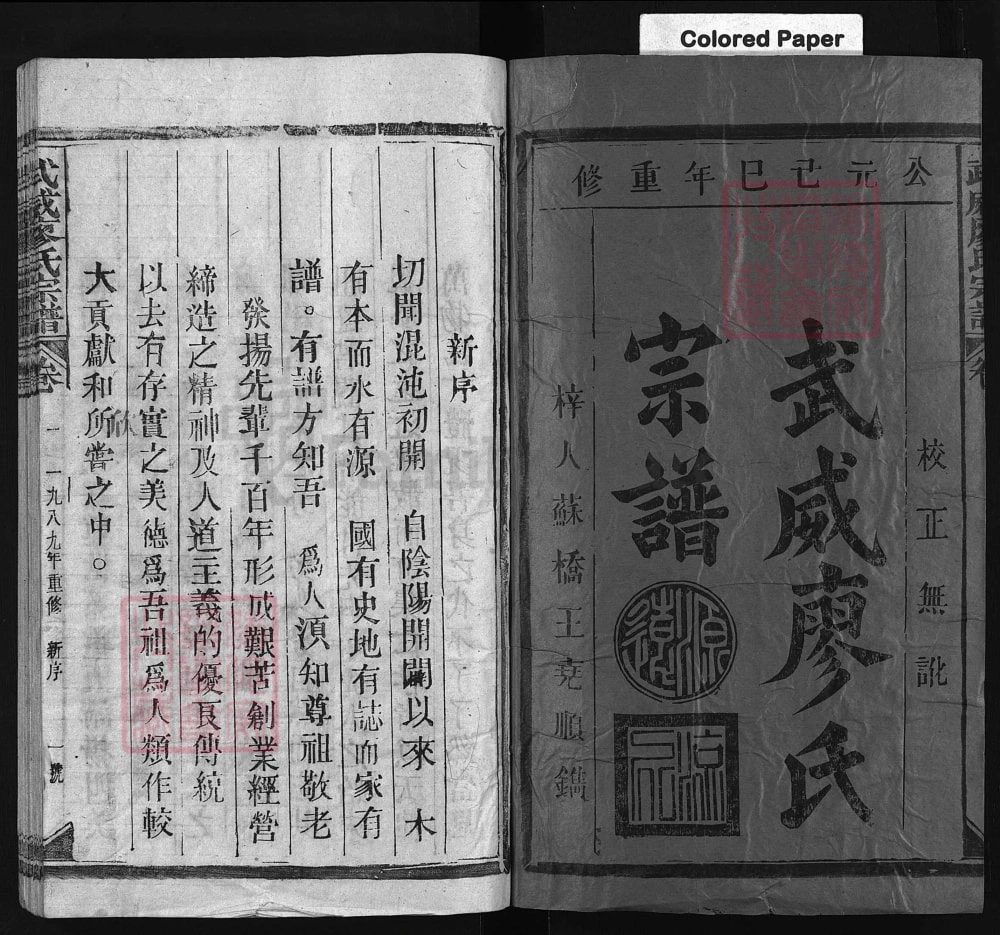 Colored Paper
公元己巳年重修
校正無訛
武威廖氏
宗譜
梓人蘇橋王堯順鐫
新序
切聞混沌初開 自陰陽開闢以來 木
有本而水有源 國有史地有誌而家有
譜。有譜方知吾 爲人須知尊祖敬老
發揚先輩千百年形成艱苦創業經營
締造之精神及人道主義的優良傳統
以去存實之美德爲吾祖爲人類作較
大貢獻和所嘗之中。
欣
武威廖氏宗譜
卷一
一九八九年重修
新序
一號